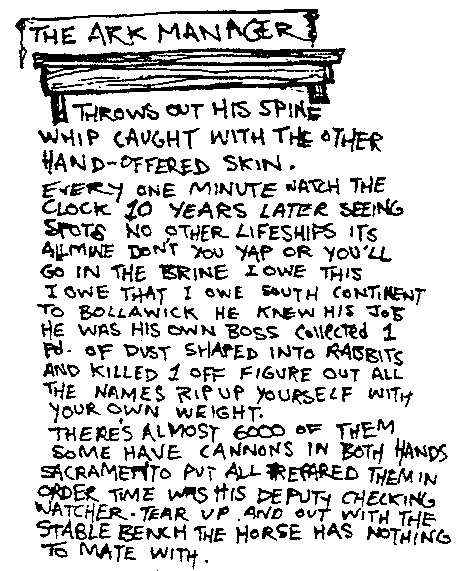 THE ARK MANAGER
THROWS OUT HIS SPINE
WHIP CAUGHT WITH THE OTHER
HAND-OFFERED SKIN.
EVERY ONE MINUTE WATCH THE
CLOCK 10 YEARS LATER SEEING
SPOTS NO OTHER LIFESHIPS ITS
ALL MINE DON'T YOU YAP OR YOU'LL
GO IN THE BRINE I OWE THIS
I OWE THAT I OWE SOUTH CONTINENT
TO BOLLAWICK HE KNEW HIS JOB
HE WAS HIS OWN BOSS COLLECTED 1
Pd. OF DUST SHAPED INTO RABBITS
AND KILLED 1 OFF FIGURE OUT ALL
THE NAMES RIP UP YOURSELF WITH
YOUR OWN WEIGHT.
THERE'S ALMOST 6000 OF THEM
SOME HAVE CANNONS IN BOTH HANDS
SACRAMENTO PUT ALL THEM IN
ORDER TIME WAS HIS DEPUTY CHECKING
WATCHER. TEAR UP AND OUT WITH THE
STABLE BENCH THE HORSE HAS NOTHING
TO MATE WITH.